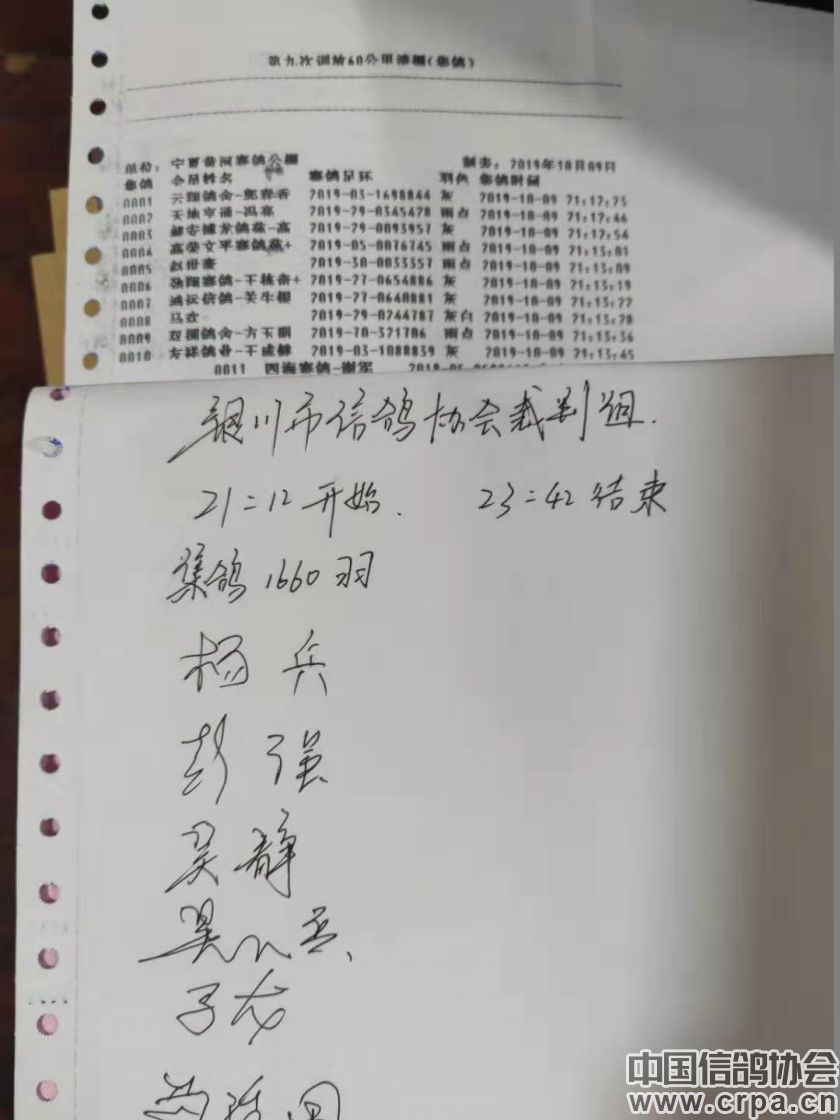 第九次训放60公里清棚(集鸽)
单位: 宁夏黄河赛鸽公棚 制表: 2019年10月09日
集鸽 会员姓名 赛鸽足环 羽色 集鸽时间
0001 云翔鸽舍-郭春香 2019-03-1698844 灰 2019-10-09 21:12:23
0002 天地亨通-冯亮 2019-29-0345428 雨点 2019-10-09 21:12:46
0003 2019-29-0093957 灰 2019-10-09 21:12:54
0004 高荣文平赛鸽 + 2019-05-0076745 雨点 2019-10-09 21:13:01
0005 2019-30-0033357 雨点 2019-10-09 21:13:09
0006 翔赛鸽-王 + 2019-27-0654886 灰 2019-10-09 21:13:19
0007 鸿运信鸽-关牛根 2019-27-0640881 灰 2019-10-09 21:13:22
0008 马 2019-29-0244787 灰白 2019-10-09 21:13:28
0009 双拥鸽舍-方玉明 2019-20-321706 雨点 2019-10-09 21:13:36
0010 友祥鸽业-王成健 2019-03-1088839 灰 2019-10-09 21:13:45
0011 四海赛鸽-谢军
银川市信鸽协会裁判组.
21:12开始. 23:42结束
集鸽1660羽
杨兵
彭强
吴静
子龙
中国信鸽协会
www.crpa.cn